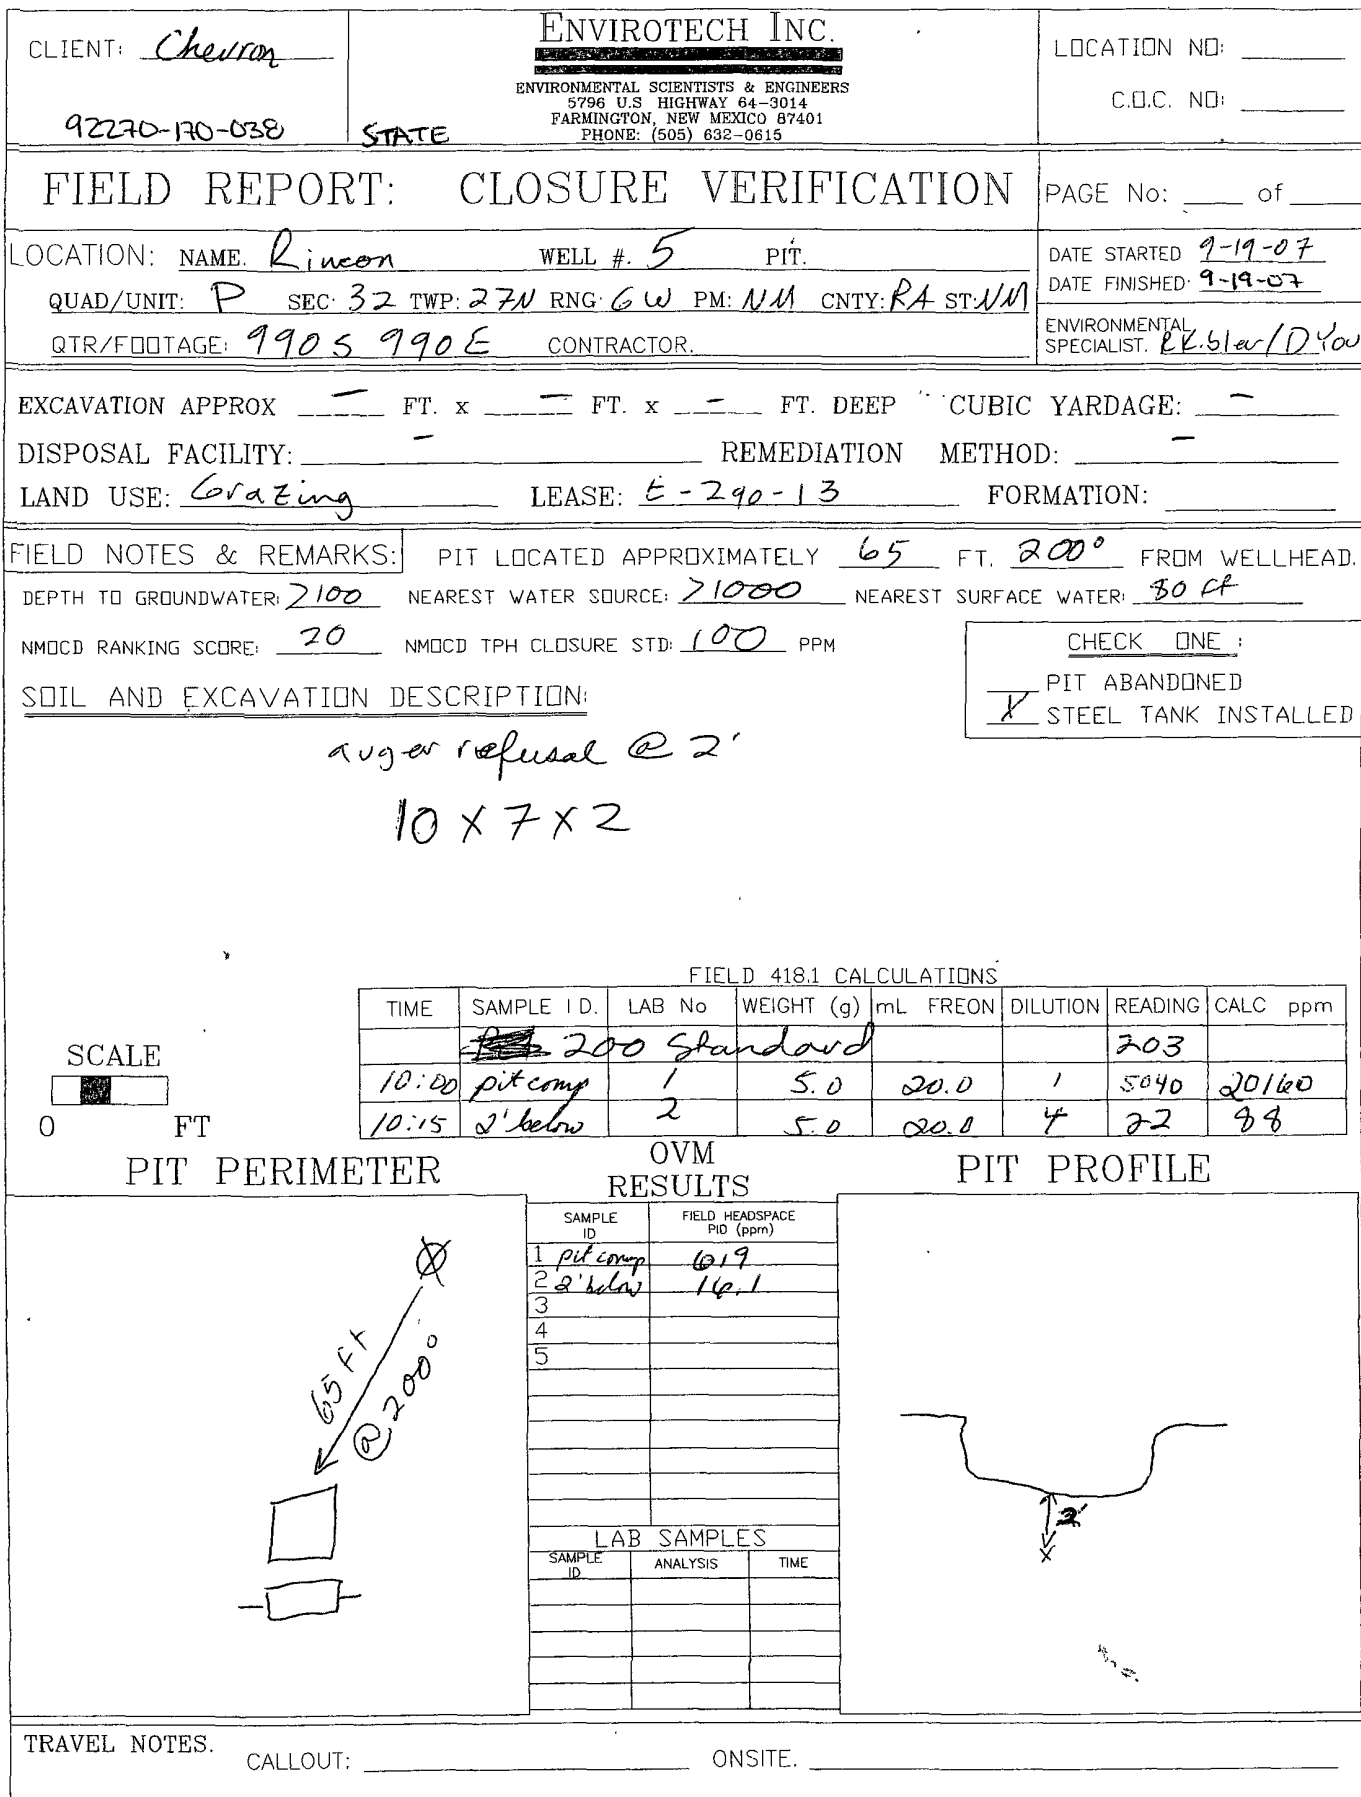 CLIENT: Chevron
92270-170-038
STATE
ENVIROTECH INC.
ENVIRONMENTAL SCIENTISTS & ENGINEERS
5796 U.S HIGHWAY 64-3014
FARMINGTON, NEW MEXICO 87401
PHONE: (505) 632-0615
LOCATION NO:
C.O.C. NO:
FIELD REPORT: CLOSURE VERIFICATION
PAGE No: of
LOCATION: NAME. Rincon WELL #. 5 PIT.
QUAD/UNIT: P SEC: 32 TWP: 27N RNG: 6W PM: NM CNTY: RA ST: NM
QTR/FOOTAGE: 990 S 990 E CONTRACTOR.
DATE STARTED 9-19-07
DATE FINISHED: 9-19-07
ENVIRONMENTAL
SPECIALIST.
EXCAVATION APPROX - FT. x - FT. x - FT. DEEP CUBIC YARDAGE: -
DISPOSAL FACILITY: - REMEDIATION METHOD: -
LAND USE: Grazing LEASE: E-290-13 FORMATION:
FIELD NOTES & REMARKS: PIT LOCATED APPROXIMATELY 65 FT. 200° FROM WELLHEAD.
DEPTH TO GROUNDWATER: >100 NEAREST WATER SOURCE: >1000 NEAREST SURFACE WATER: 80 ft
NMOCD RANKING SCORE: 20 NMOCD TPH CLOSURE STD: 100 PPM
CHECK ONE :
PIT ABANDONED
X STEEL TANK INSTALLED
SOIL AND EXCAVATION DESCRIPTION:
auger refusal @ 2'
10 x 7 x 2
FIELD 418.1 CALCULATIONS
TIME SAMPLE I D. LAB No WEIGHT (g) mL FREON DILUTION READING CALC ppm
200 Standard 203
10:00 pit comp 1 5.0 20.0 1 5040 20160
10:15 2' below 2 5.0 20.0 4 22 88
SCALE
0 FT
PIT PERIMETER
OVM
RESULTS
PIT PROFILE
SAMPLE
ID
FIELD HEADSPACE
PID (ppm)
1 pit comp 619
2 2' below 16.1
3
4
5
65 ft
@ 200°
2'
X
LAB SAMPLES
SAMPLE
ID
ANALYSIS TIME
TRAVEL NOTES.
CALLOUT: ONSITE.